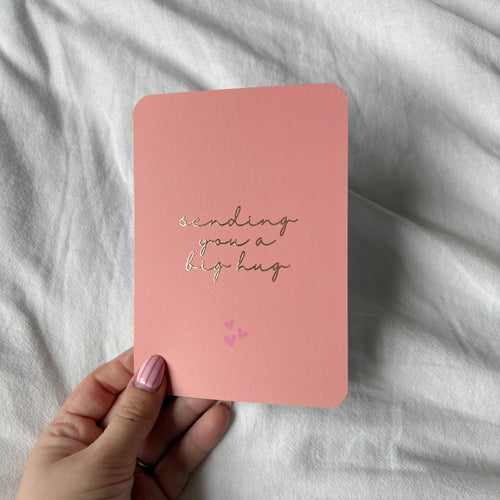 sending
you a
big hug